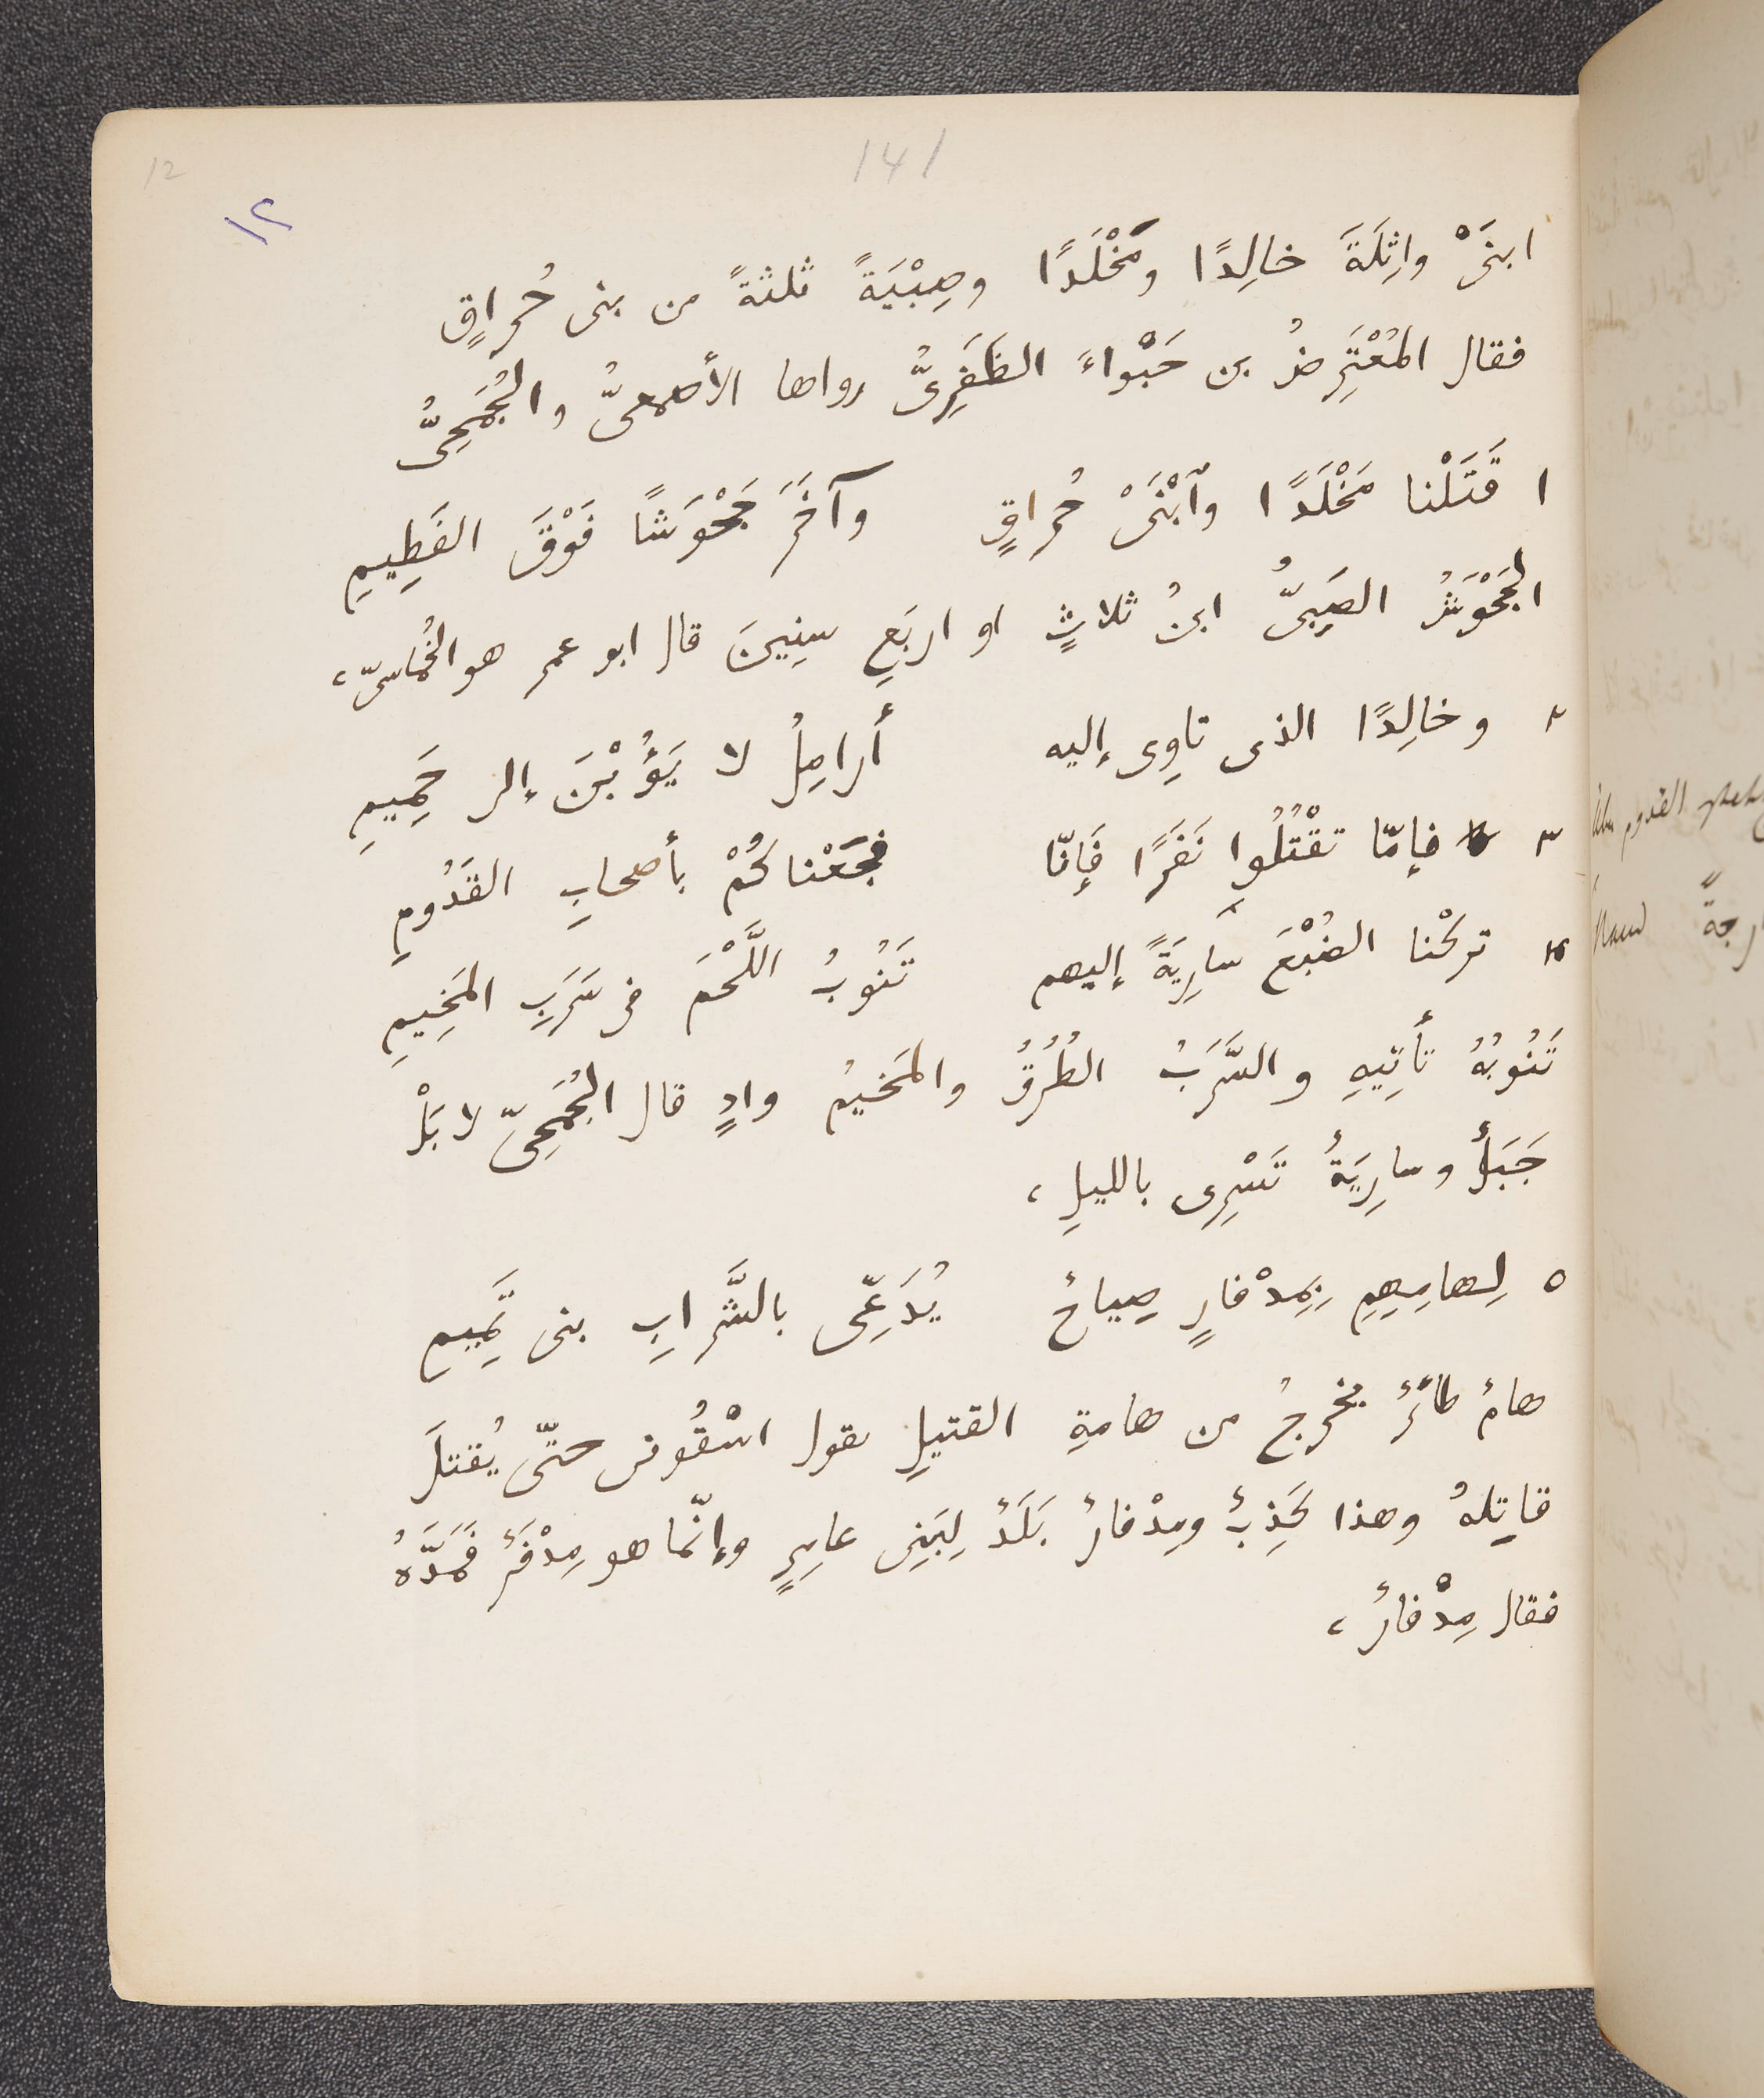 12
141
١٢
ابنَىْ واثِلَةَ خالِدًا ومَخْلَدًا وصِبْيَةً ثلثةً من بنى حُراقٍ
فقال المُعْتَرِضُ بن حَبْواءَ الظَفَرِىُّ رواها الأصمعىُّ والجُمَحِىُّ
١ قَتَلْنا مَخْلَدًا وٱبْنَىْ حُراقٍ وآخَرَ جَحْوَشًا فَوْقَ الفَطِيمِ
الجَحْوَشُ الصَبِىُّ ابنُ ثلاثٍ او اربَعِ سِنِينَ قال ابو عمر هو الخُماسىّ،
٢ وخالِدًا الذى تاوِى إليه أرامِلُ لا يَؤُبْنَ إلى حَمِيمِ
٣ فإمّا تقْتُلُوا نَفَرًا فَإنّا فجَعْناكُمْ بأصحابِ القَدُومِ
٤ تركْنا الضُبْعَ سارِيَةً إليهم تَنُوبُ اللَّحْمَ فى سَرَبِ المَخِيمِ
تَنُوبُهُ تأتِيهِ والسَّرَبُ الطُرُقُ والمَخيمُ وادٍ قال الجُمَحِىّ لا بَلْ
جَبَلٌ وسارِيَةٌ تَسْرِى بالليلِ،
٥ لِهامِهِمِ بِمِدْفارٍ صِياحٌ يُدَعِّى بالشَّرابِ بنى تَمِيمِ
هامٌ طائرٌ يخرجُ من هامةِ القتيلِ يقول اسْقُونى حتّى يُقتلَ
قاتِلهُ وهذا كَذِبٌ ومِدْفارٌ بَلَدٌ لِبَنِى عامِرٍ وإنّما هو مِدْفَرٌ فَمَدَّهُ
فقال مِدْفارٌ،
القدوم